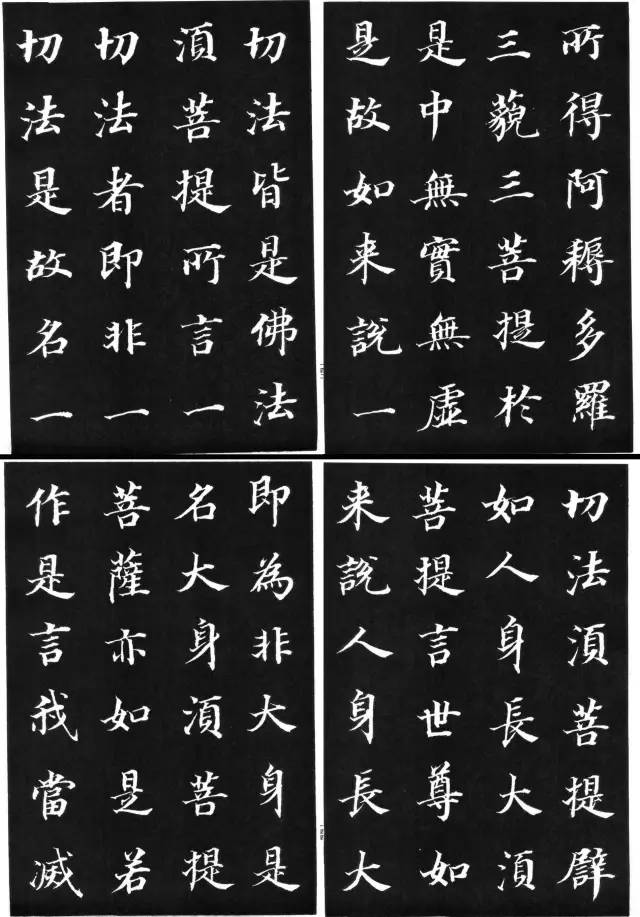 所得阿耨多羅
三藐三菩提於
是中無實無虛
是故如来說一
切法皆是佛法
湏菩提所言一
切法者即非一
切法是故名一
切法湏菩提辟
如人身長大湏
菩提言世尊如
来說人身長大
即為非大身是
名大身湏菩提
菩薩亦如是若
作是言我當滅